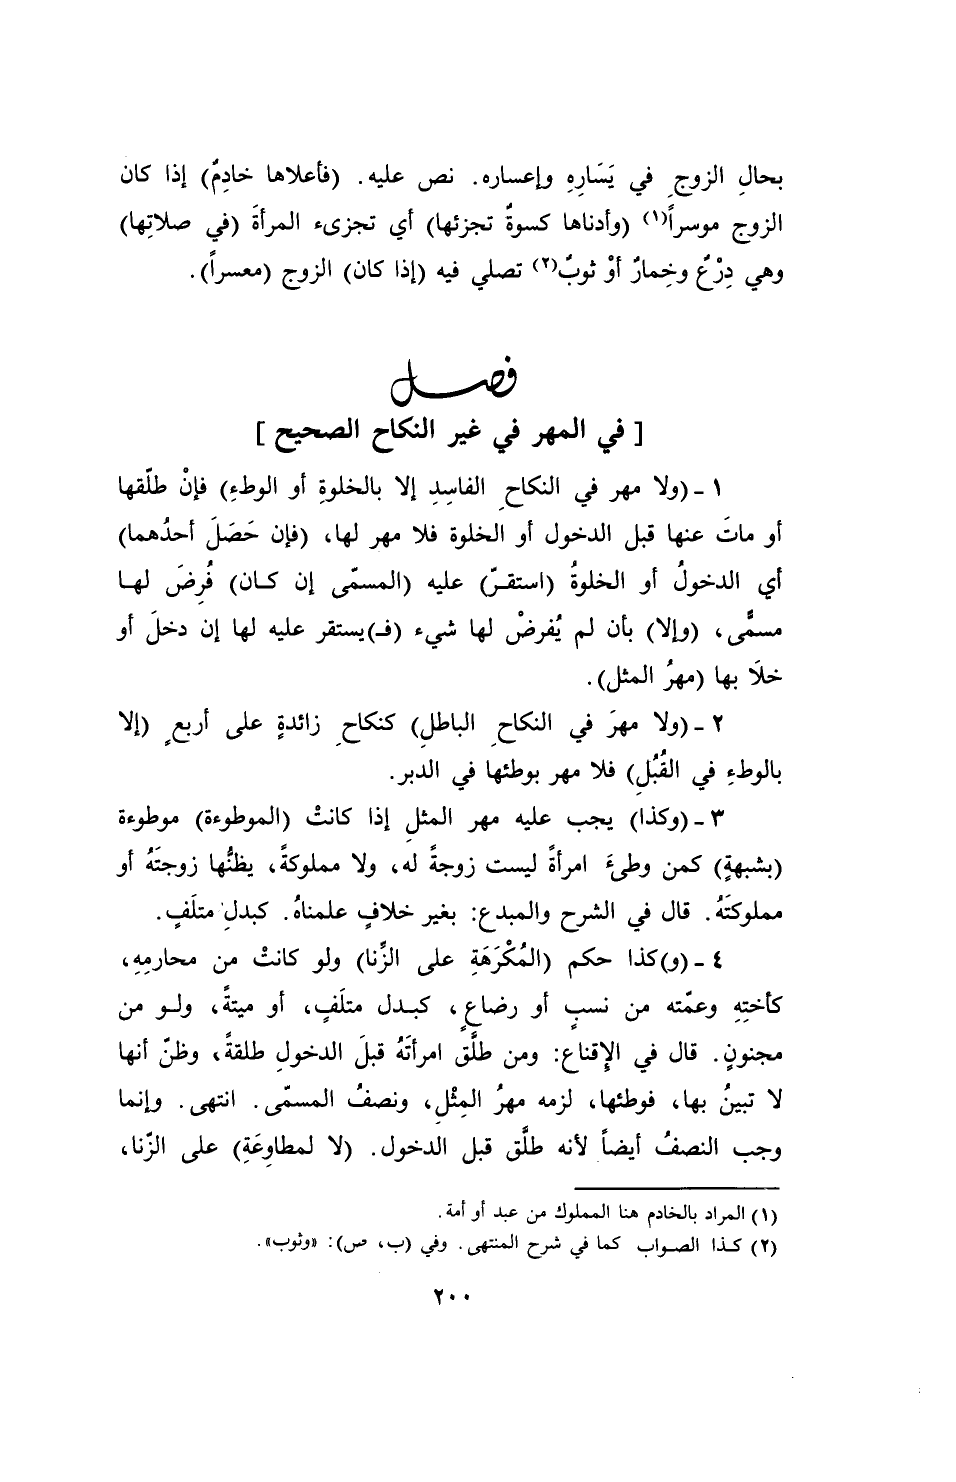 بحالِ الزوجِ في يَسَارِهِ وإعساره. نص عليه. (فأعلاها خادِمٌ) إذا كان
الزوج موسراً(١) (وأدناها كسوةٌ تجزئها) أي تجزىء المرأةَ (في صلاتِها)
وهي دِرْعٌ وخِمارٌ أوْ ثوبٌ(٢) تصلي فيه (إذا كان) الزوج (معسراً).
فصل
[ في المهر في غير النكاح الصحيح ]
١ - (ولا مهر في النكاحِ الفاسِدِ إلا بالخلوةِ أو الوطءِ) فإنْ طلّقها
أو ماتَ عنها قبل الدخول أو الخلوة فلا مهر لها، (فإن حَصَلَ أحدُهما)
أي الدخولُ أو الخلوةُ (استقرّ) عليه (المسمّى إن كان) فُرِضَ لها
مسمًّى، (وإلا) بأن لم يُفرضْ لها شيء (فـ)يستقر عليه لها إن دخلَ أو
خلَا بها (مهرُ المثل).
٢ - (ولا مهرَ في النكاحِ الباطلِ) كنكاحِ زائدةٍ على أربعٍ (إلا
بالوطءِ في القُبُلِ) فلا مهر بوطئها في الدبر.
٣ - (وكذا) يجب عليه مهر المثلِ إذا كانتْ (الموطوءة) موطوءة
(بشبهةٍ) كمن وطىءَ امرأةً ليست زوجةً له، ولا مملوكةً، يظنُّها زوجتَهُ أو
مملوكتَهُ. قال في الشرح والمبدع: بغير خلافٍ علمناهُ. كبدلِ متلَفٍ.
٤ - (و)كذا حكم (المُكْرَهَةِ على الزِّنا) ولو كانتْ من محارمِهِ،
كأختِهِ وعمّته من نسبٍ أو رضاعٍ، كبدل متلَفٍ، أو ميتةً، ولو من
مجنونٍ. قال في الإقناع: ومن طلَّق امرأتَهُ قبلَ الدخولِ طلقةً، وظنّ أنها
لا تبينُ بها، فوطئها، لزمه مهرُ المِثْلِ، ونصفُ المسمّى. انتهى. وإنما
وجب النصفُ أيضاً لأنه طلَّق قبل الدخول. (لا لمطاوِعَةِ) على الزّنا،
(١) المراد بالخادم هنا المملوك من عبد أو أمة.
(٢) كذا الصواب كما في شرح المنتهى. وفي (ب، ص): «وثوب».
٢٠٠